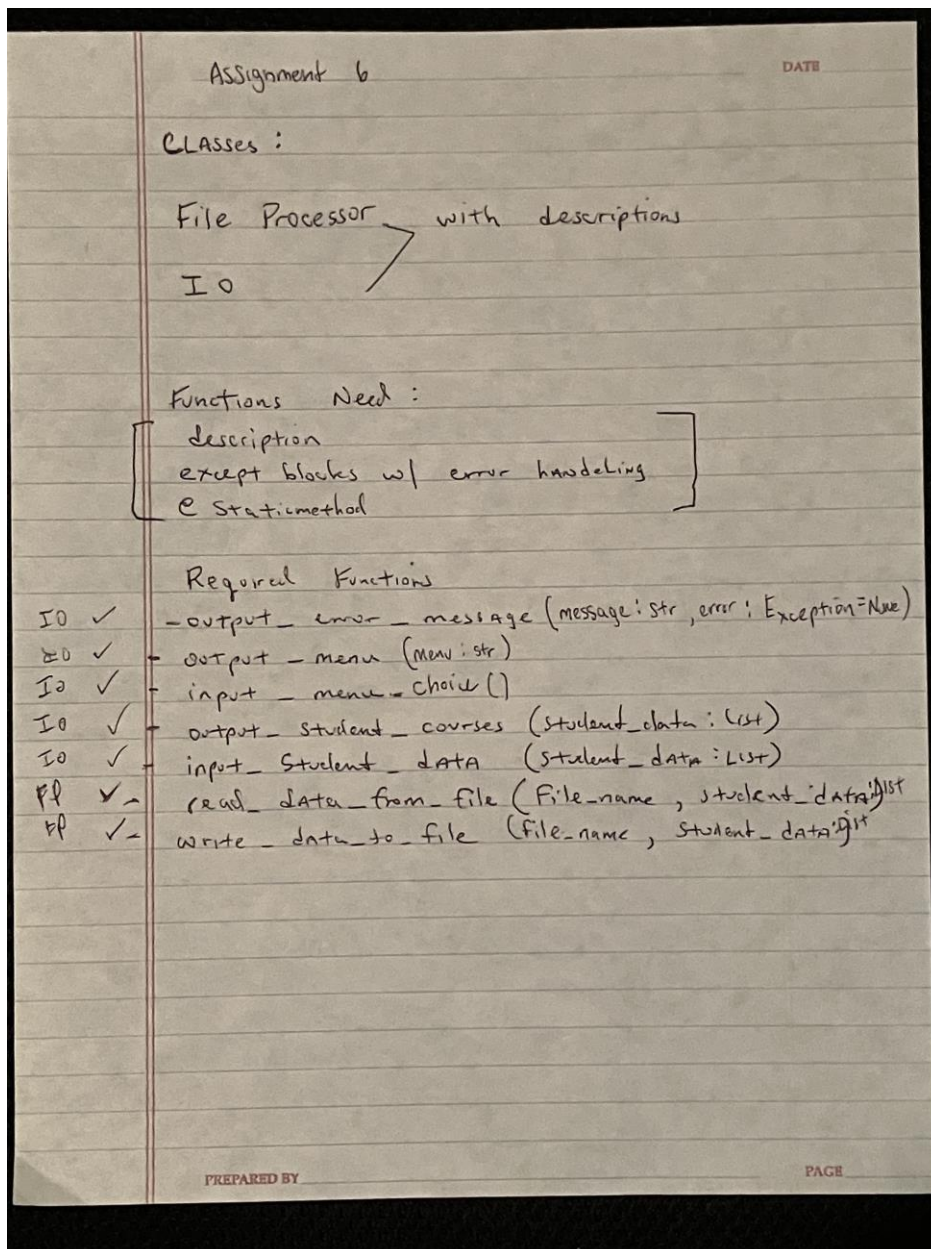 Assignment 6 DATE
CLASSES :
File Processor with descriptions
IO
Functions Need :
description
except blocks w/ error handeling
@ staticmethod
Required Functions
IO ✓ - output_ error _ message (message: str, error: Exception=None)
IO ✓ - output _ menu (menu: str)
IO ✓ - input _ menu _ choice()
IO ✓ - output_ student _ courses (student_data: list)
IO ✓ - input_ Student _ data (student_data: List)
FP ✓ - read_ data_from_file (File_name, student_data: list
FP ✓ - write _ data_to_file (file_name, student_data: list
PREPARED BY PAGE